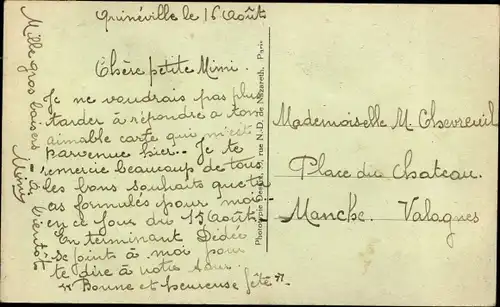 Quinéville le 16 Août
Chère petite Mimi.
Je ne voudrais pas plus
tarder à répondre a ton
aimable carte qui m'est
parvenue hier.. Je te
remercie beaucoup de tous
les bons souhaits que tu
as formulés pour moi
en ce jour du 15 Août.
En terminant Dédée
se joint à moi pour
te dire à notre tour
"Bonne et heureuse fête"
Mille gros baisers - à bientôt
Mimy
Phototypie Desaix, rue N.-D. de Nazareth, Paris
Mademoiselle M. Chevreuil
Place du Chateau.
Manche. Valognes